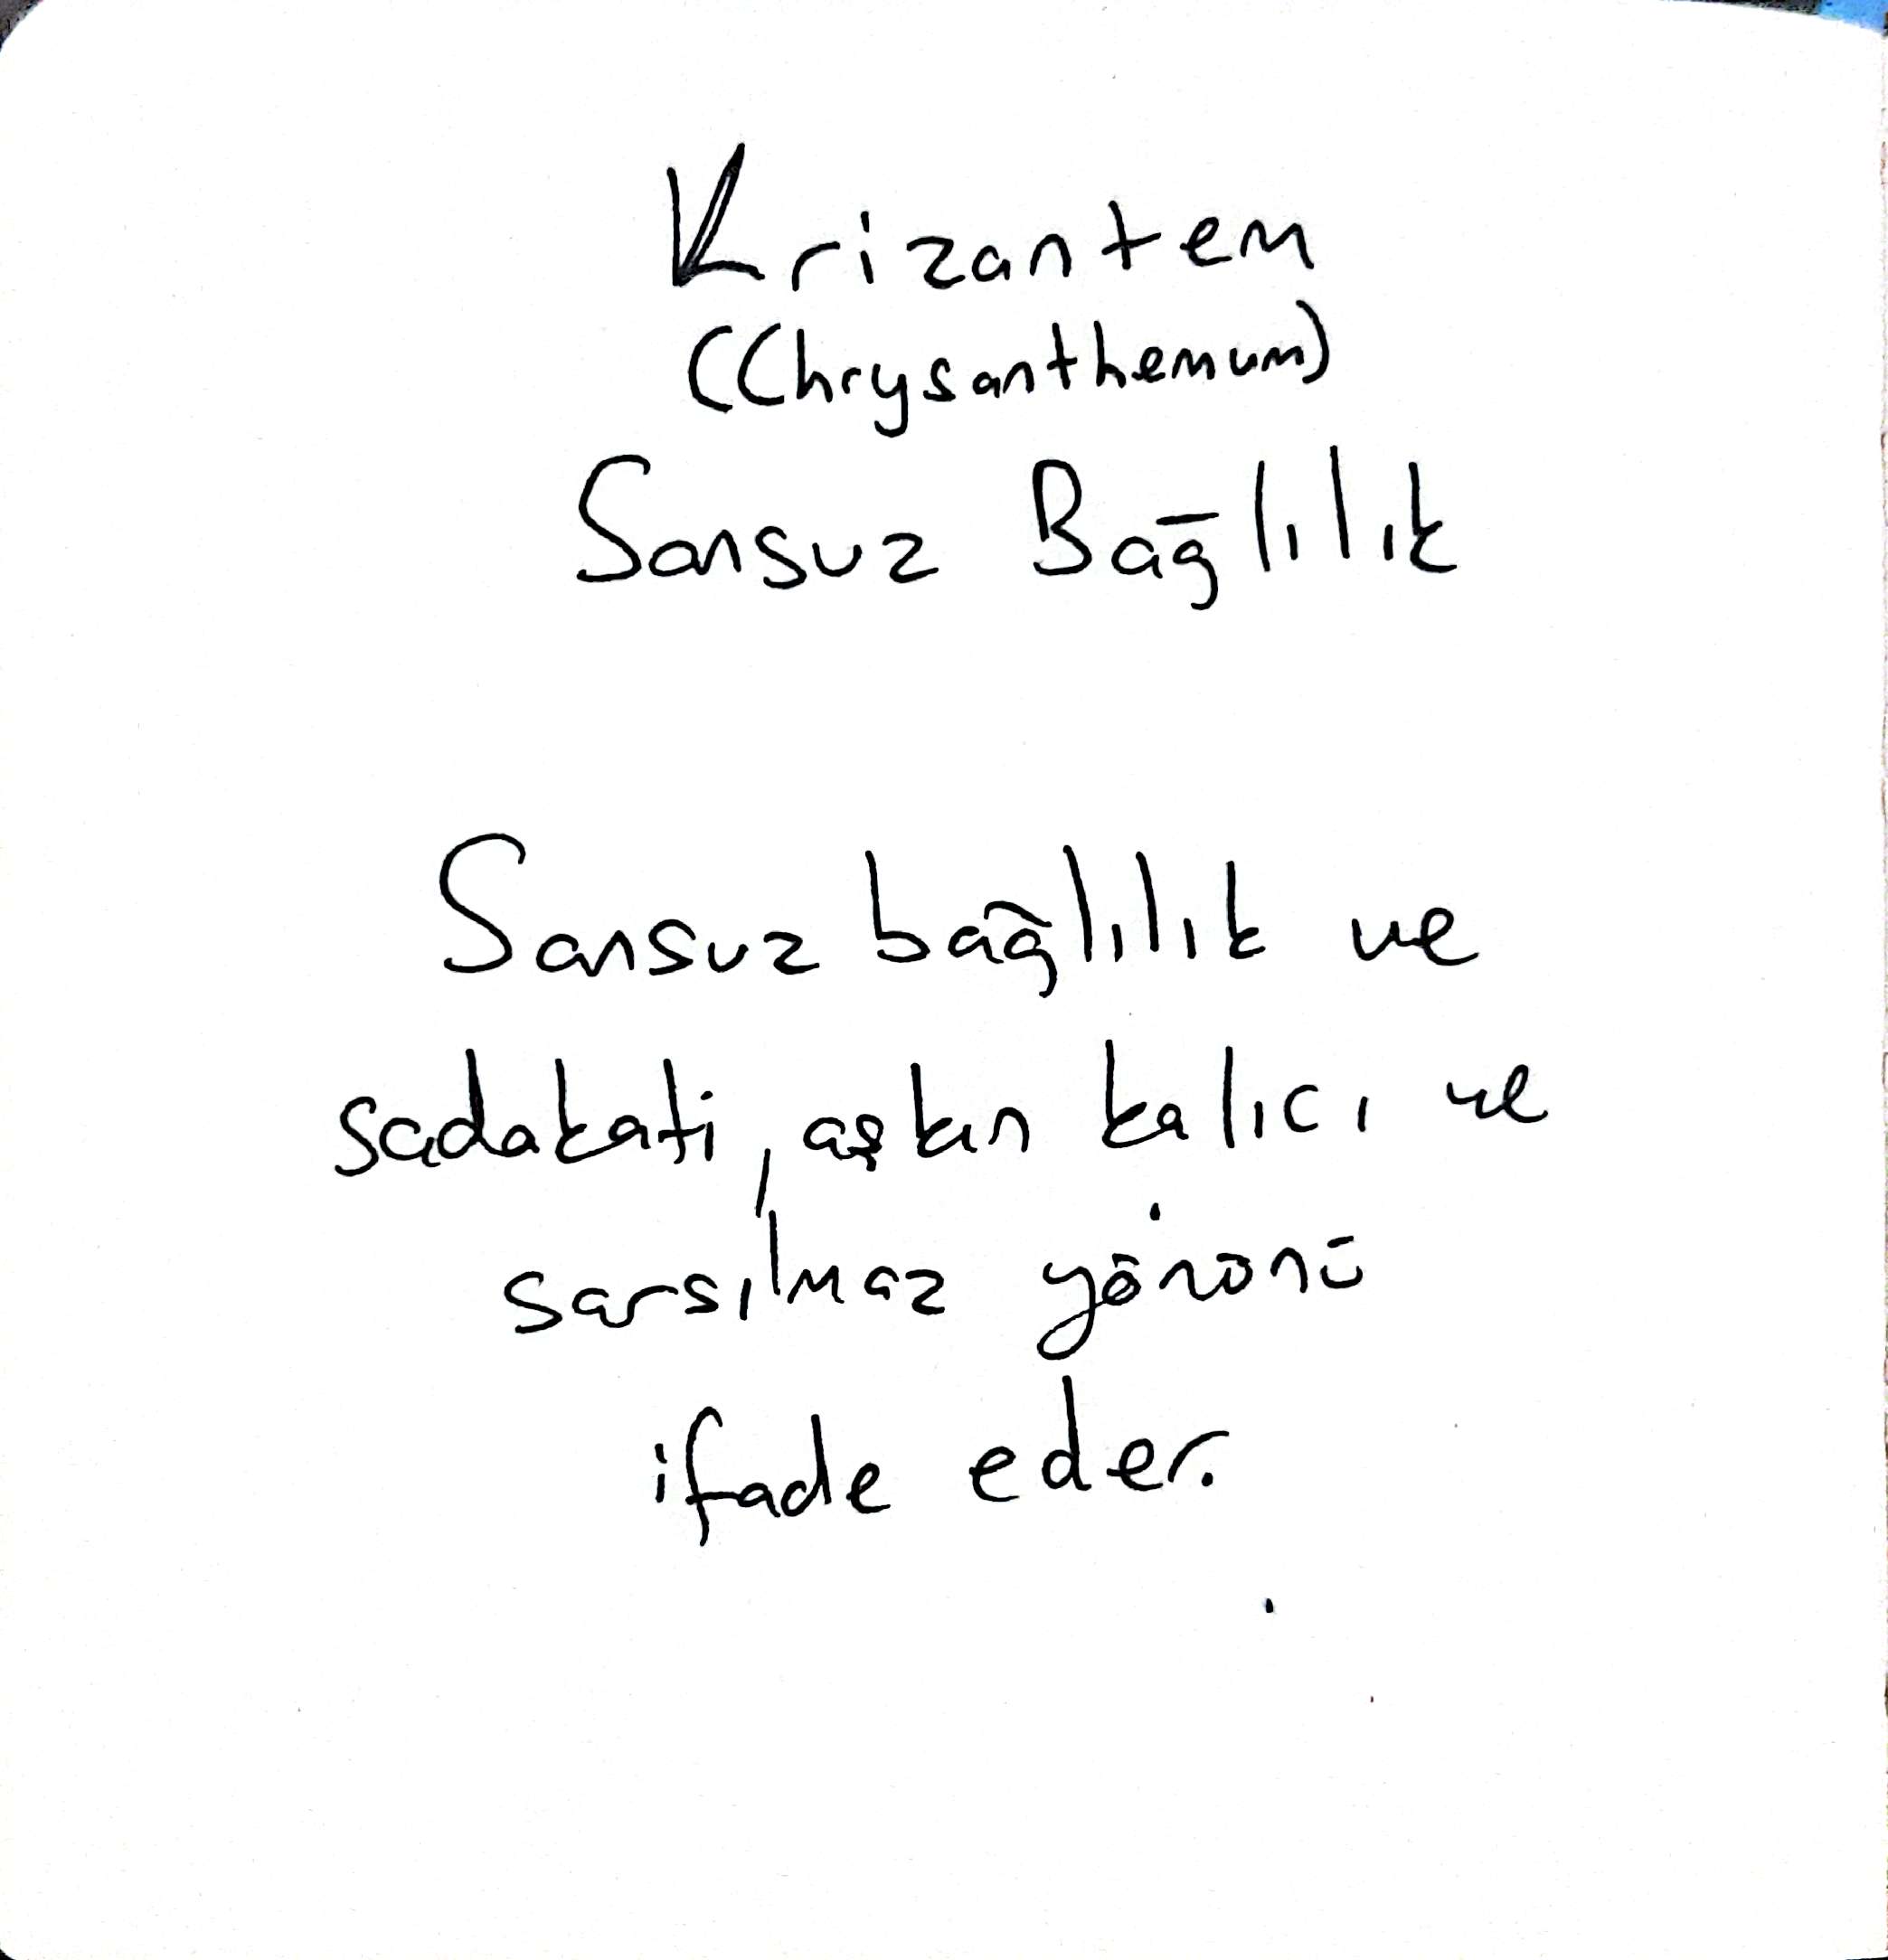 Krizantem
(Chrysanthemum)
Sonsuz Bağlılık
Sonsuz bağlılık ve
sadakati, aşkın kalıcı ve
sarsılmaz yönünü
ifade eder.